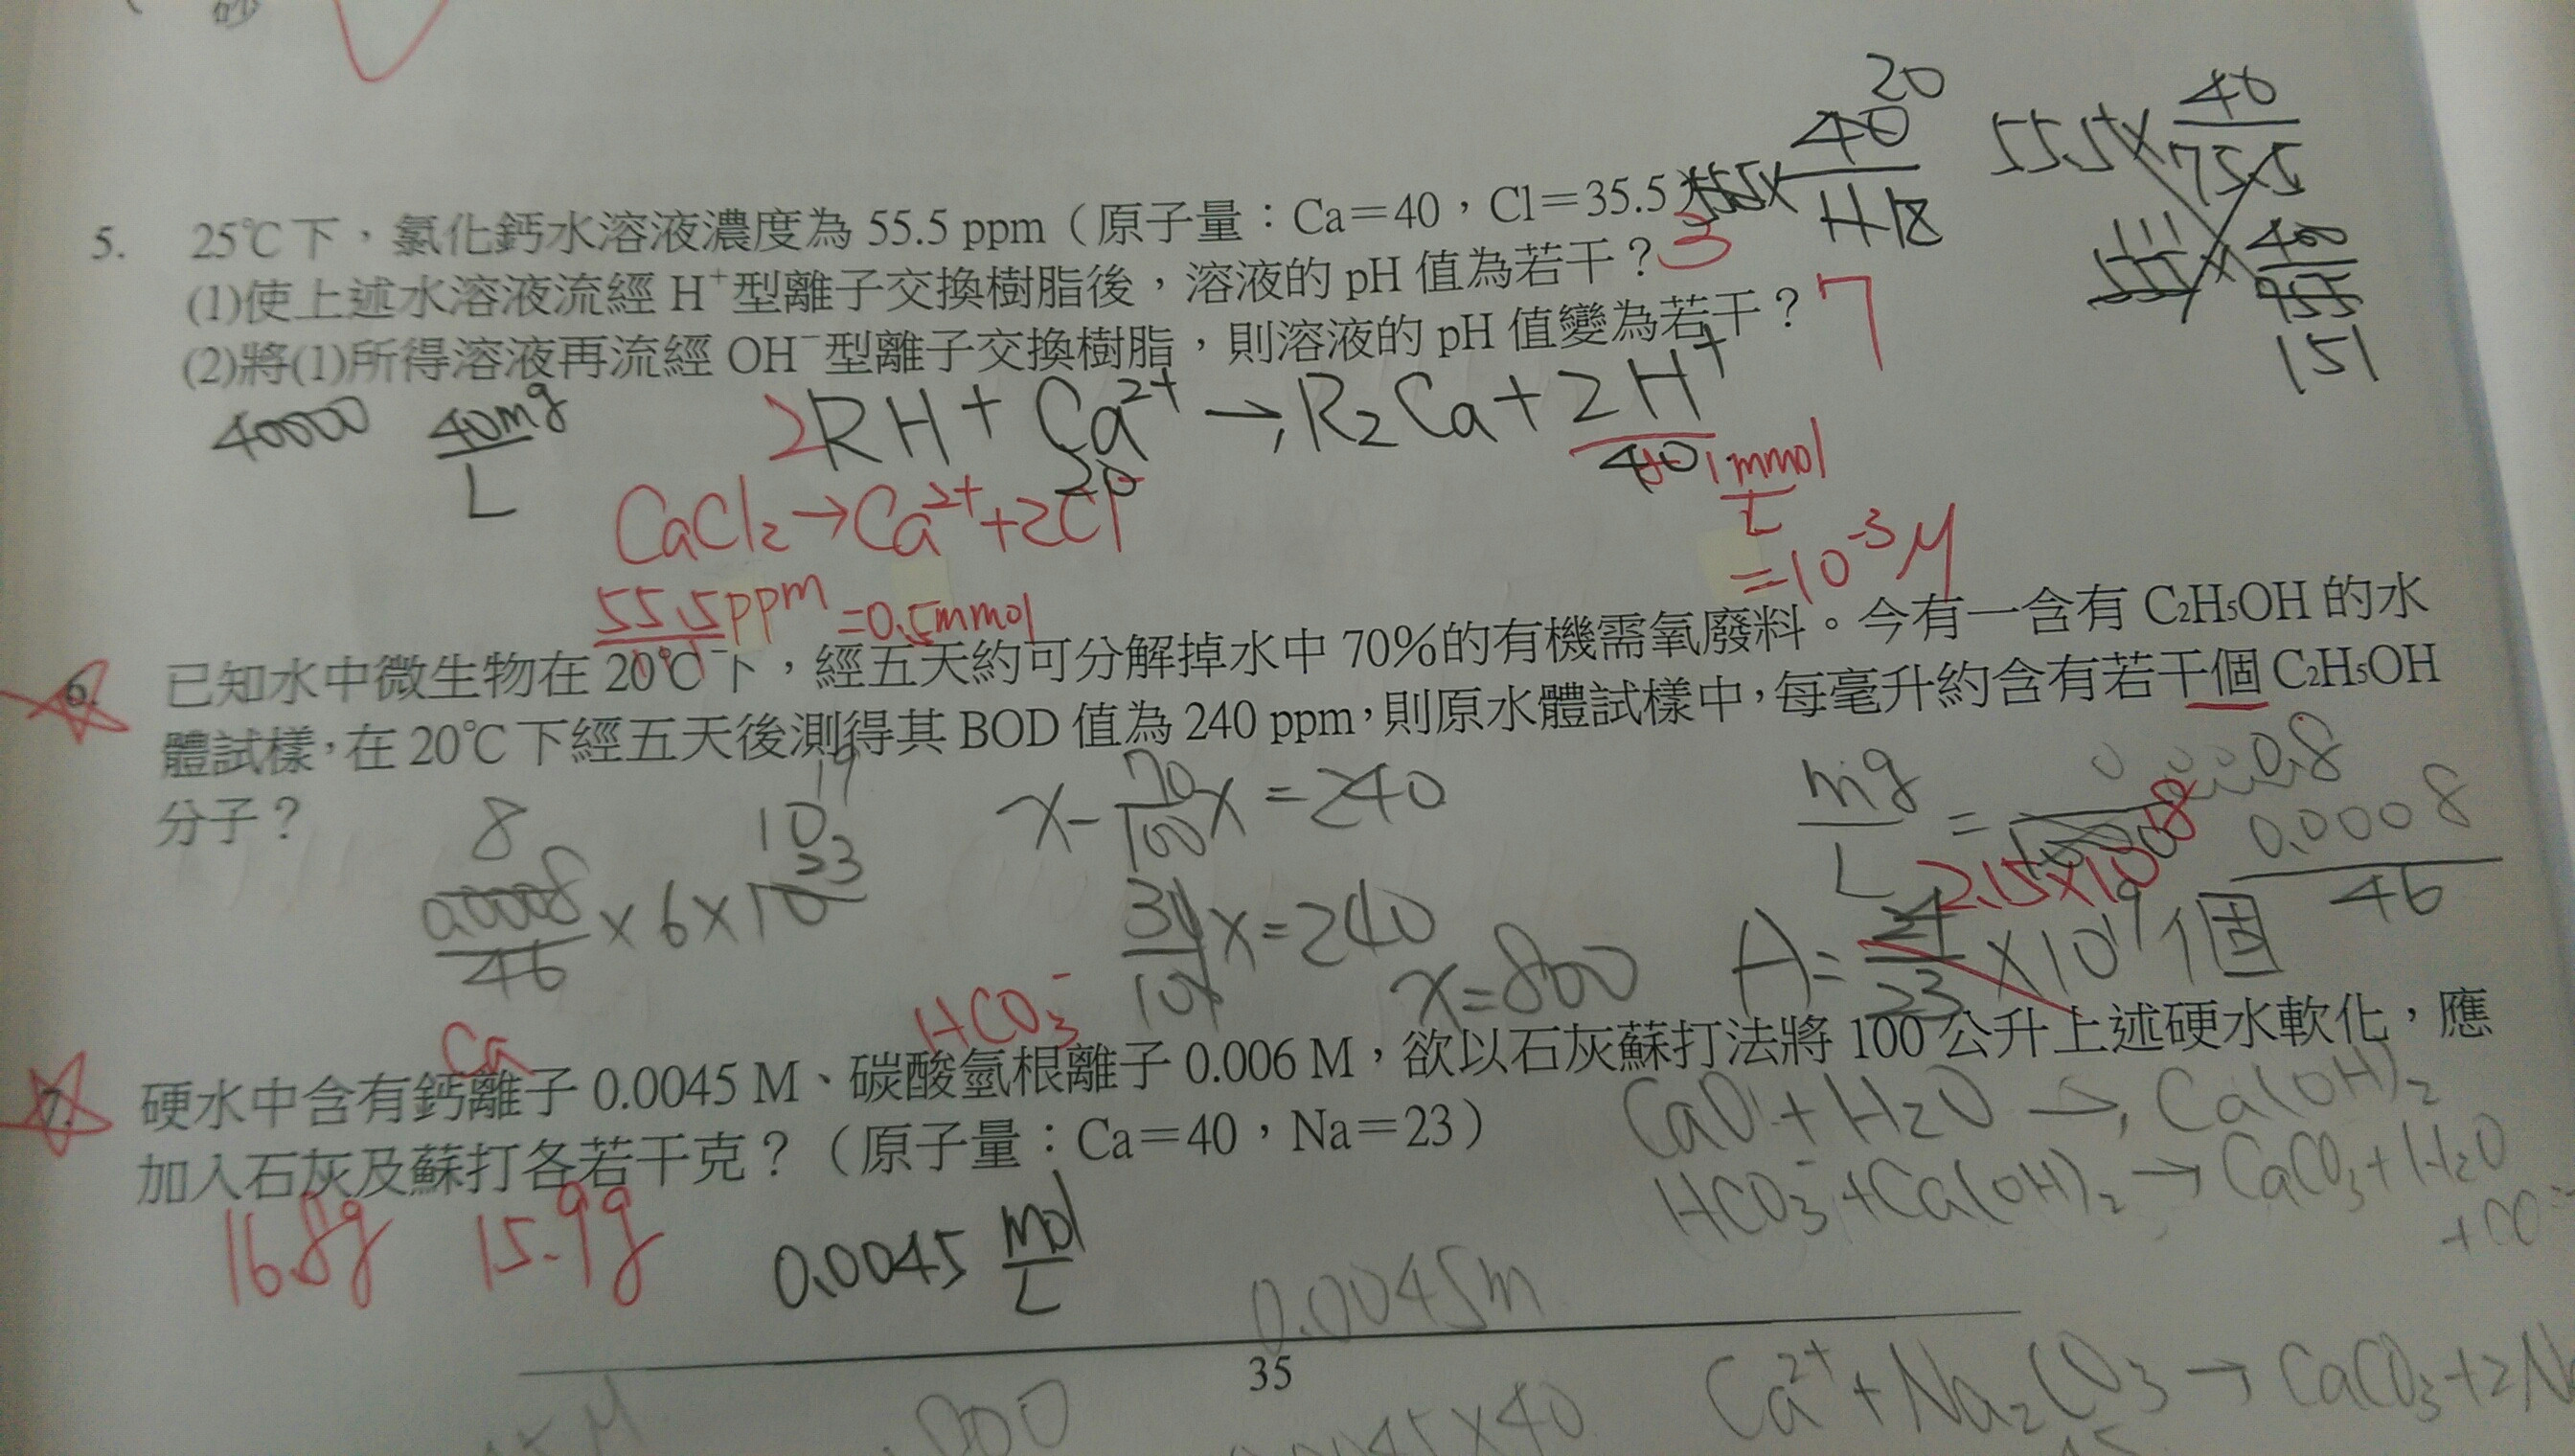 砂
20
40
55.5×
55.5× 40/75.5
5. 25℃下，氯化鈣水溶液濃度為 55.5 ppm（原子量：Ca＝40，Cl＝35.5）
(1)使上述水溶液流經 H⁺型離子交換樹脂後，溶液的 pH 值為若干？ 3
(2)將(1)所得溶液再流經 OH⁻型離子交換樹脂，則溶液的 pH 值變為若干？ 7
151
40000 40mg/L 2RH + Ca²⁺ → R₂Ca + 2H⁺
20 40 1mmol/L
CaCl₂ → Ca²⁺ + 2Cl⁻
=10⁻³M
55.5ppm =0.5mmol
6. 已知水中微生物在 20℃下，經五天約可分解掉水中 70%的有機需氧廢料。今有一含有 C₂H₅OH 的水
體試樣，在 20℃下經五天後測得其 BOD 值為 240 ppm，則原水體試樣中，每毫升約含有若干個 C₂H₅OH
分子？
8 10¹⁹ x - 70/100 x = 240 mg/L = 0.8
0.0008/46 × 6 × 10²³ 2.15×10¹⁸ 0.0008/46
30/100 x = 240 x = 800 A = 24/23 × 10¹⁹ 個
Ca HCO₃⁻
7. 硬水中含有鈣離子 0.0045 M、碳酸氫根離子 0.006 M，欲以石灰蘇打法將 100 公升上述硬水軟化，應
加入石灰及蘇打各若干克？（原子量：Ca＝40，Na＝23）
CaO + H₂O → Ca(OH)₂
HCO₃⁻ + Ca(OH)₂ → CaCO₃ + H₂O
16.8g 15.9g 0.0045 mol/L
0.0045m
35
Ca²⁺ + Na₂CO₃ → CaCO₃ + 2N